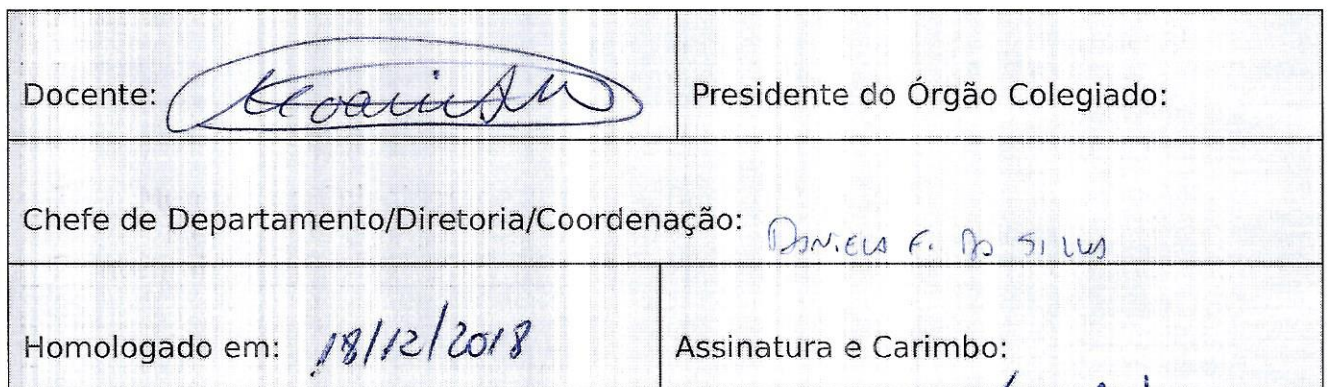 Docente:
Presidente do Órgão Colegiado:
Chefe de Departamento/Diretoria/Coordenação: DANIELA F. DA SILVA
Homologado em: 18/12/2018
Assinatura e Carimbo: